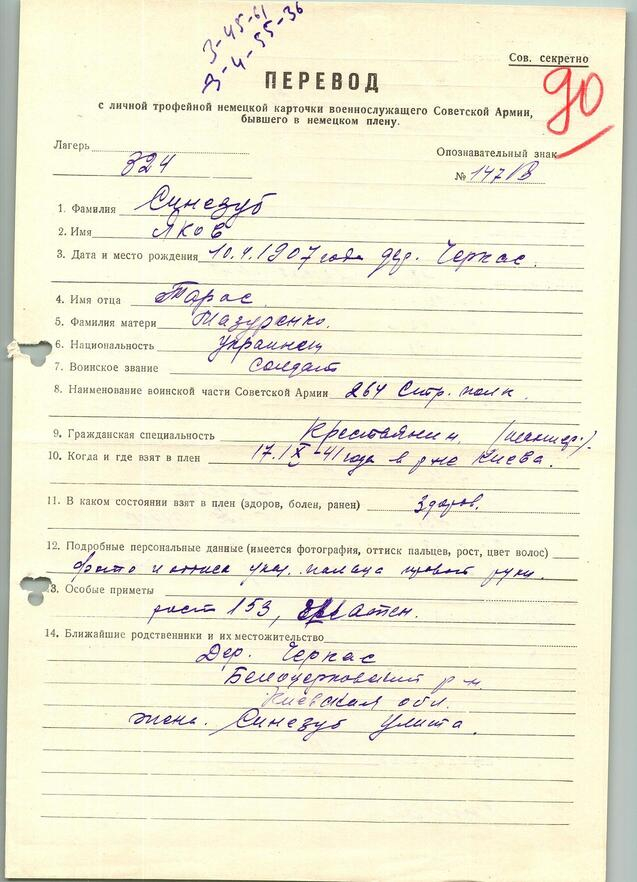 3-45-61
3-4-55-36
Сов. секретно
90
ПЕРЕВОД
с личной трофейной немецкой карточки военнослужащего Советской Армии,
бывшего в немецком плену.
Лагерь
Опознавательный знак
324
№ 147/В
1. Фамилия Синезуб
2. Имя Яков
3. Дата и место рождения 10.4.1907 года дер. Черкас.
4. Имя отца Тарас.
5. Фамилия матери Мазуренко.
6. Национальность украинец
7. Воинское звание солдат
8. Наименование воинской части Советской Армии 264 Стр. полк.
9. Гражданская специальность Крестьянин.
10. Когда и где взят в плен 17.IX-41 года в р-не Киева.
11. В каком состоянии взят в плен (здоров, болен, ранен) Здоров.
12. Подробные персональные данные (имеется фотография, оттиск пальцев, рост, цвет волос)
фото и оттиск указ. пальца правой руки.
13. Особые приметы
рост 153,
14. Ближайшие родственники и их местожительство
Дер. Черкас
Белоцерковский р-н.
Киевская обл.
жена. Синезуб Улита.